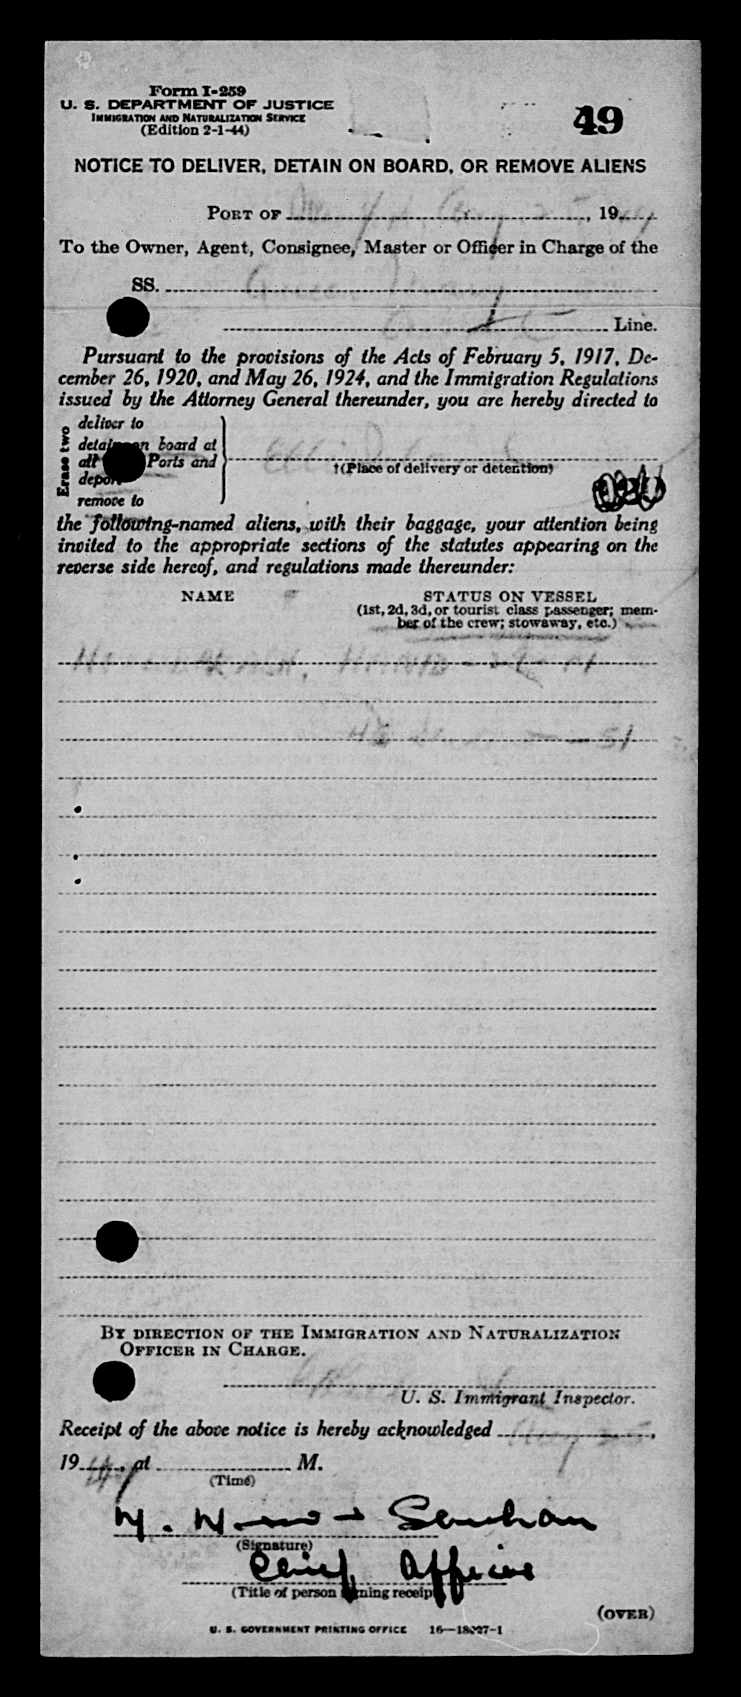 Form I-259
U. S. DEPARTMENT OF JUSTICE
IMMIGRATION AND NATURALIZATION SERVICE
(Edition 2-1-44)
49
NOTICE TO DELIVER, DETAIN ON BOARD, OR REMOVE ALIENS
PORT OF , 19
To the Owner, Agent, Consignee, Master or Officer in Charge of the
SS.
Line.
Pursuant to the provisions of the Acts of February 5, 1917, De-
cember 26, 1920, and May 26, 1924, and the Immigration Regulations
issued by the Attorney General thereunder, you are hereby directed to
Erase two
deliver to
detain on board at
all Ports and
deport
remove to
†(Place of delivery or detention)
the following-named aliens, with their baggage, your attention being
invited to the appropriate sections of the statutes appearing on the
reverse side hereof, and regulations made thereunder:
NAME STATUS ON VESSEL
(1st, 2d, 3d, or tourist class passenger; mem-
ber of the crew; stowaway, etc.)
BY DIRECTION OF THE IMMIGRATION AND NATURALIZATION
OFFICER IN CHARGE.
U. S. Immigrant Inspector.
Receipt of the above notice is hereby acknowledged Aug 25,
1949, at M.
(Time)
(Signature)
Chief Officer
(Title of person signing receipt)
(OVER)
U. S. GOVERNMENT PRINTING OFFICE 16—18027-1